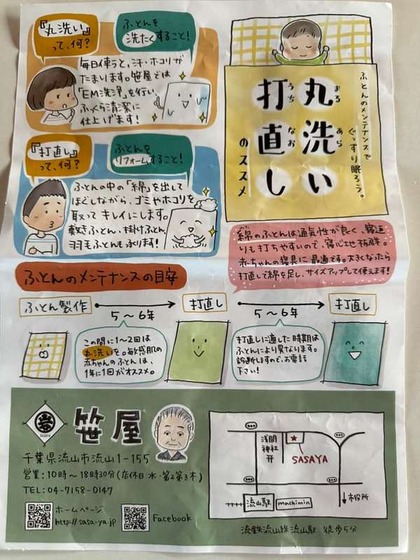 「丸洗い」
って、何?
ふとんを
洗たくすること!
毎日使うと、汗・ホコリが
たまります。笹屋では
"EM洗浄"を行い、
ふっくら清潔に
仕上げます!
「打直し」
って、何?
ふとんを
リフォームすること!
ふとんの中の「綿」を出して
ほぐしながら、ゴミやホコリを
取ってキレイにします。
敷きふとん・掛けふとん
羽毛ふとんも承ります!
ふとんのメンテナンスで
ぐっすり眠ろう。
丸洗い
まる あら
打直し
うち なお
のススメ
綿のふとんは通気性が良く、寝返
りも打ちやすいので、寝心地抜群。
赤ちゃんの寝具に最適です。大きくなったら
打直して綿を足し、サイズアップして使えます!
ふとんのメンテナンスの目安
ふとん製作
5～6年
打直し
5～6年
打直し
この間に1～2回は
丸洗いを。敏感肌の
赤ちゃんのふとんは、
1年に1回がオススメ。
打直しに適した時期は
ふとんにより異なります。
診断しますので、お電話
下さい!
笹屋
千葉県流山市流山1-155
営業:10時～18時30分(店休日:水・第2第3木)
TEL:04-7158-0147
ホームページ
http://sasa-ya.jp
Facebook
浅間
神社
〒
SASAYA
流山駅
machimin
市役所
流鉄流山線流山駅 徒歩5分